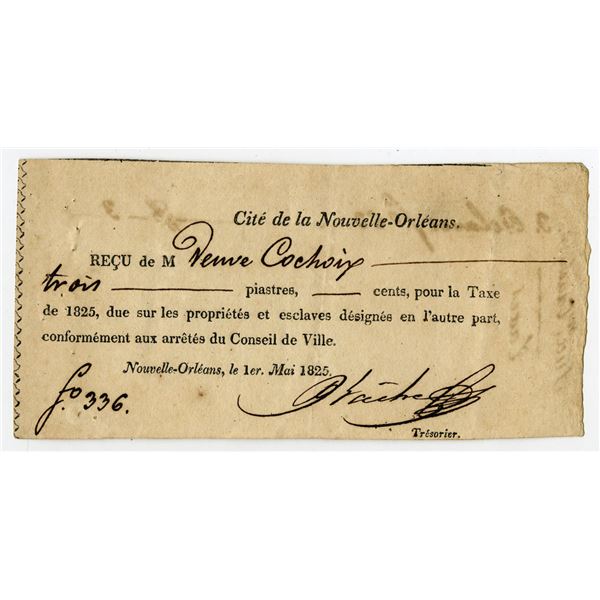 Cité de la Nouvelle-Orléans.
REÇU de M Veuve Cochoix
trois piastres, cents, pour la Taxe
de 1825, due sur les propriétés et esclaves désignées en l'autre part,
conformément aux arrêtés du Conseil de Ville.
Nouvelle-Orléans, le 1er. Mai 1825.
fo. 336.
Trésorier.